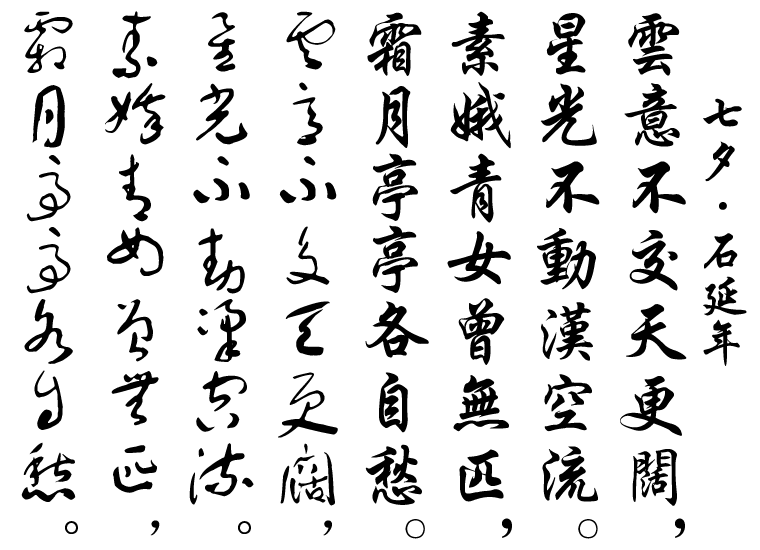 七夕·石延年
雲意不交天更闊，
星光不動漢空流。
素娥青女曾無匹，
霜月亭亭各自愁。
雲意不交天更闊，
星光不動漢空流。
素娥青女曾無匹，
霜月亭亭各自愁。